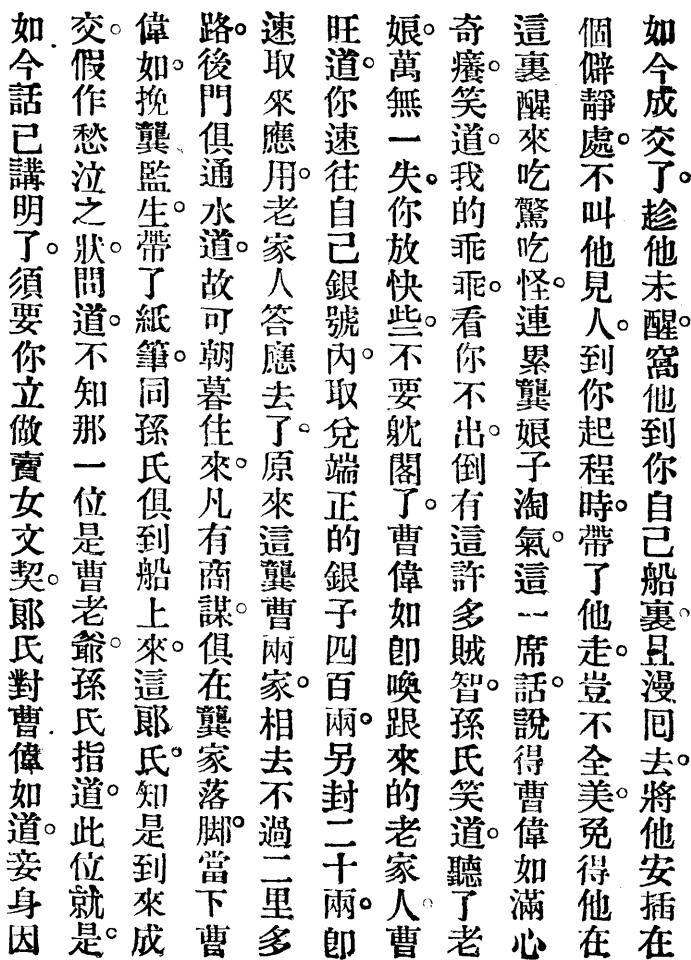 如今成交了。趁他未醒。窩他到你自己船裏。且漫回去。將他安插在
個僻靜處。不叫他見人。到你起程時。帶了他走。豈不全美。免得他在
這裏醒來吃驚吃怪。連累龔娘子淘氣。這一席話。說得曹偉如滿心
奇癢。笑道。我的乖乖。看你不出。倒有這許多賊智。孫氏笑道。聽了老
娘。萬無一失。你放快些。不要躭閣了。曹偉如卽喚跟來的老家人。曹
旺道。你速往自己銀號內。取兌端正的銀子四百兩。另封二十兩。卽
速取來應用。老家人答應去了。原來這龔曹兩家。相去不過二里多
路。後門俱通水道。故可朝暮住來。凡有商謀。俱在龔家落脚。當下曹
偉如。挽龔監生。帶了紙筆。同孫氏俱到船上來。這郞氏。知是到來成
交。假作愁泣之狀。問道。不知那一位是曹老爺。孫氏指道。此位就是。
如今話已講明了。須要你立做賣女文契。郞氏對曹偉如道。妾身因